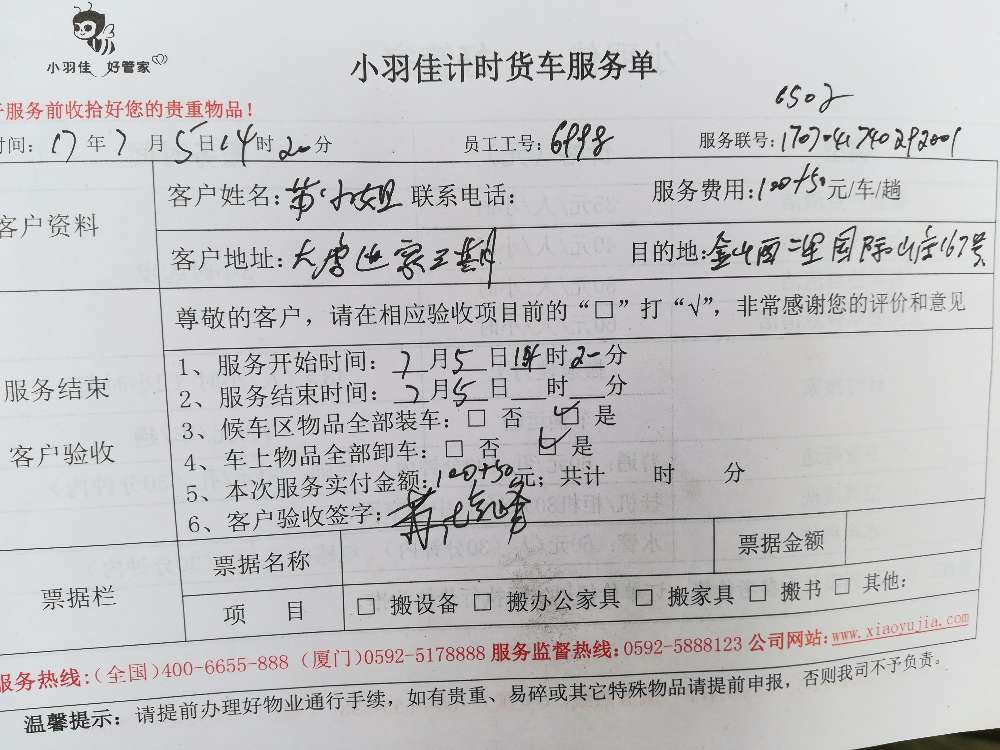 小羽佳 好管家
小羽佳计时货车服务单
服务前收拾好您的贵重物品!
6502
时间: 17年7月5日14时20分 员工工号: 6998 服务联号: 1707041740292001
客户资料
客户姓名: 小姐 联系电话: 服务费用: 100+50元/车/趟
客户地址: 大唐世家三期 目的地: 金山西二里国际山庄167号
尊敬的客户，请在相应验收项目前的“□”打“√”，非常感谢您的评价和意见
服务结束
客户验收
1、服务开始时间: 7月5日14时20分
2、服务结束时间: 7月5日 时 分
3、候车区物品全部装车: □ 否 ☑ 是
4、车上物品全部卸车: □ 否 ☑ 是
5、本次服务实付金额: 100+50元; 共计 时 分
6、客户验收签字:
票据栏
票据名称 票据金额
项 目 □ 搬设备 □ 搬办公家具 □ 搬家具 □ 搬书 □ 其他:
服务热线:(全国)400-6655-888 (厦门)0592-5178888 服务监督热线:0592-5888123 公司网站:www.xiaoyujia.com
温馨提示: 请提前办理好物业通行手续，如有贵重、易碎或其它特殊物品请提前申报，否则我司不予负责。